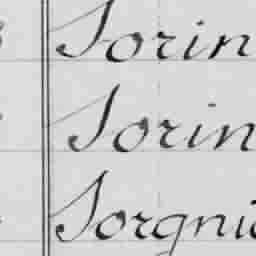 Sorin
Sorin
Sorgni